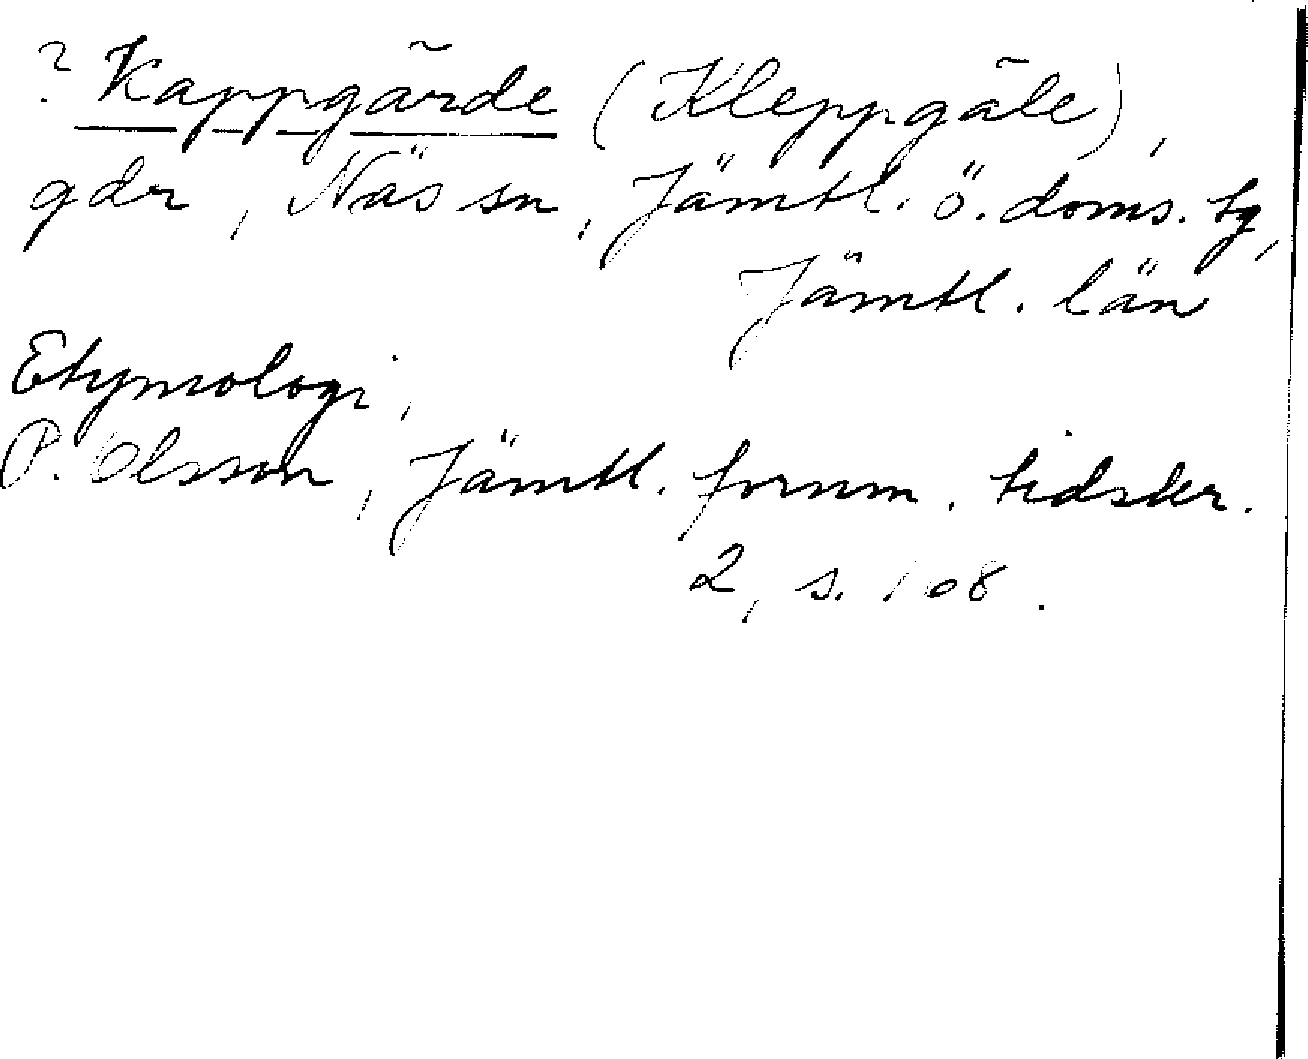 ? Kappgärde (Kleppgäle),
gdr, Näs sn, Jämtl. ö. doms. tg,
Jämtl. län
Etymologi,
P. Olsson, Jämtl. fornm. tidskr.
2, s. 108.